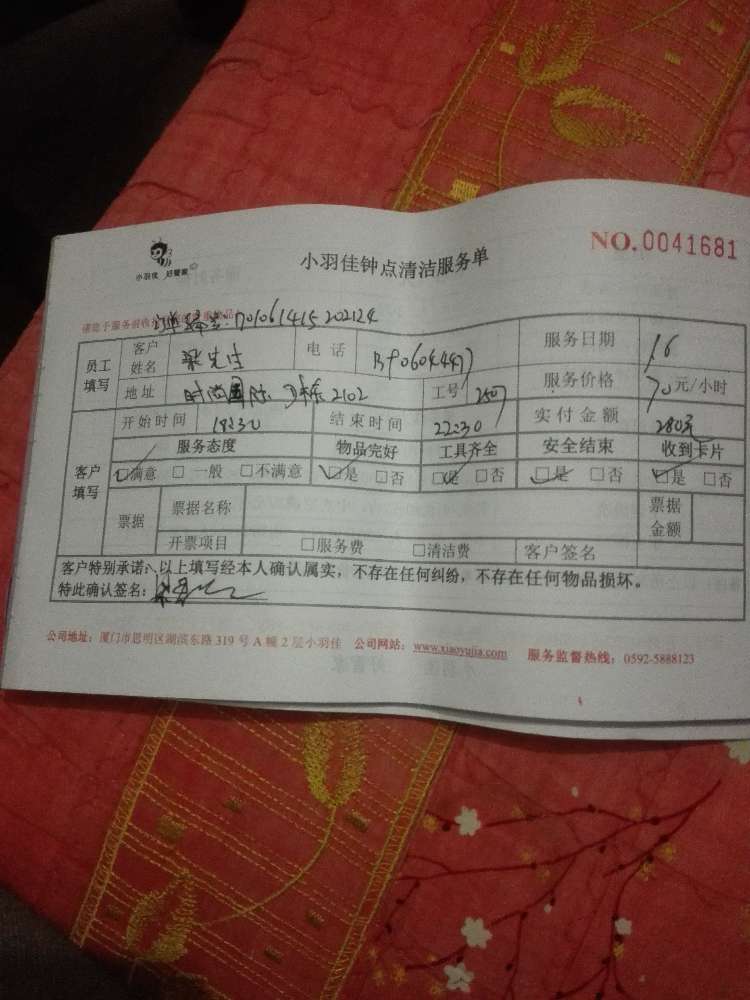 小羽佳 好管家
小羽佳钟点清洁服务单
NO.0041681
订单编号:
员工填写 客户姓名 梁先生 电话 服务日期 16
地址 时尚国际 2102 工号 服务价格 70元/小时
开始时间 18:30 结束时间 22:30 实付金额 280元
客户填写 服务态度 物品完好 工具齐全 安全结束 收到卡片
☑满意 □一般 □不满意 ☑是 □否 ☑是 □否 ☑是 □否 ☑是 □否
票据 票据名称 票据金额
开票项目 □服务费 □清洁费 客户签名
客户特别承诺:以上填写经本人确认属实,不存在任何纠纷,不存在任何物品损坏。
特此确认签名:
公司地址:厦门市思明区湖滨东路 319 号 A 幢 2 层小羽佳 公司网站:www.xiaoyujia.com 服务监督热线:0592-5888123